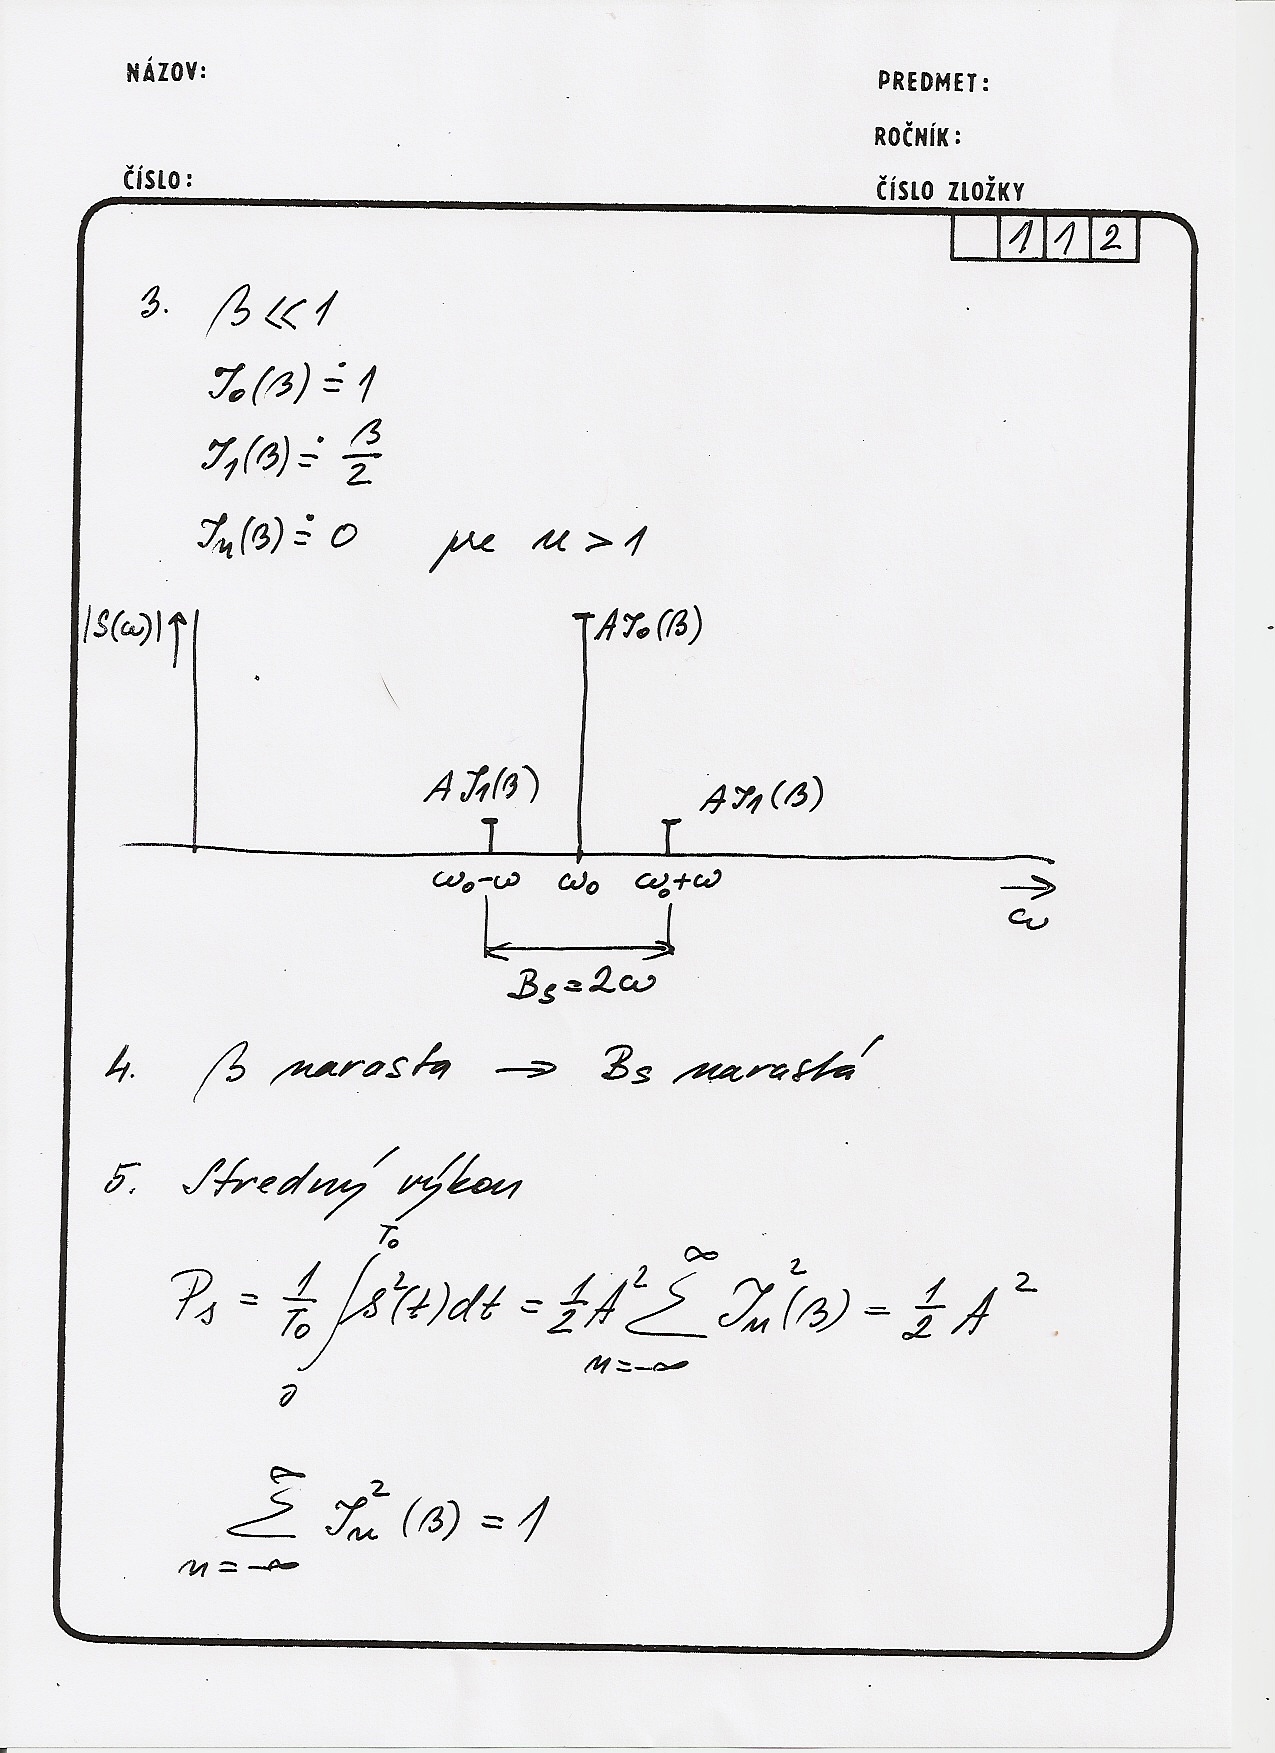 NÁZOV:
PREDMET:
ROČNÍK:
ČÍSLO:
ČÍSLO ZLOŽKY
1 1 2
3. β << 1
J₀(β) ≐ 1
J₁(β) ≐ β/2
Jₙ(β) ≐ 0 pre n > 1
|S(ω)| ↑
A J₀(β)
A J₁(β)
A J₁(β)
ω₀-ω ω₀ ω₀+ω
→ ω
Bₛ = 2ω
4. β narasta → Bₛ narastá
5. Stredný výkon
Pₛ = 1/T₀ ∫₀^T₀ s²(t) dt = 1/2 A² ∑_{n=-∞}^{∞} Jₙ²(β) = 1/2 A²
∑_{n=-∞}^{∞} Jₙ²(β) = 1